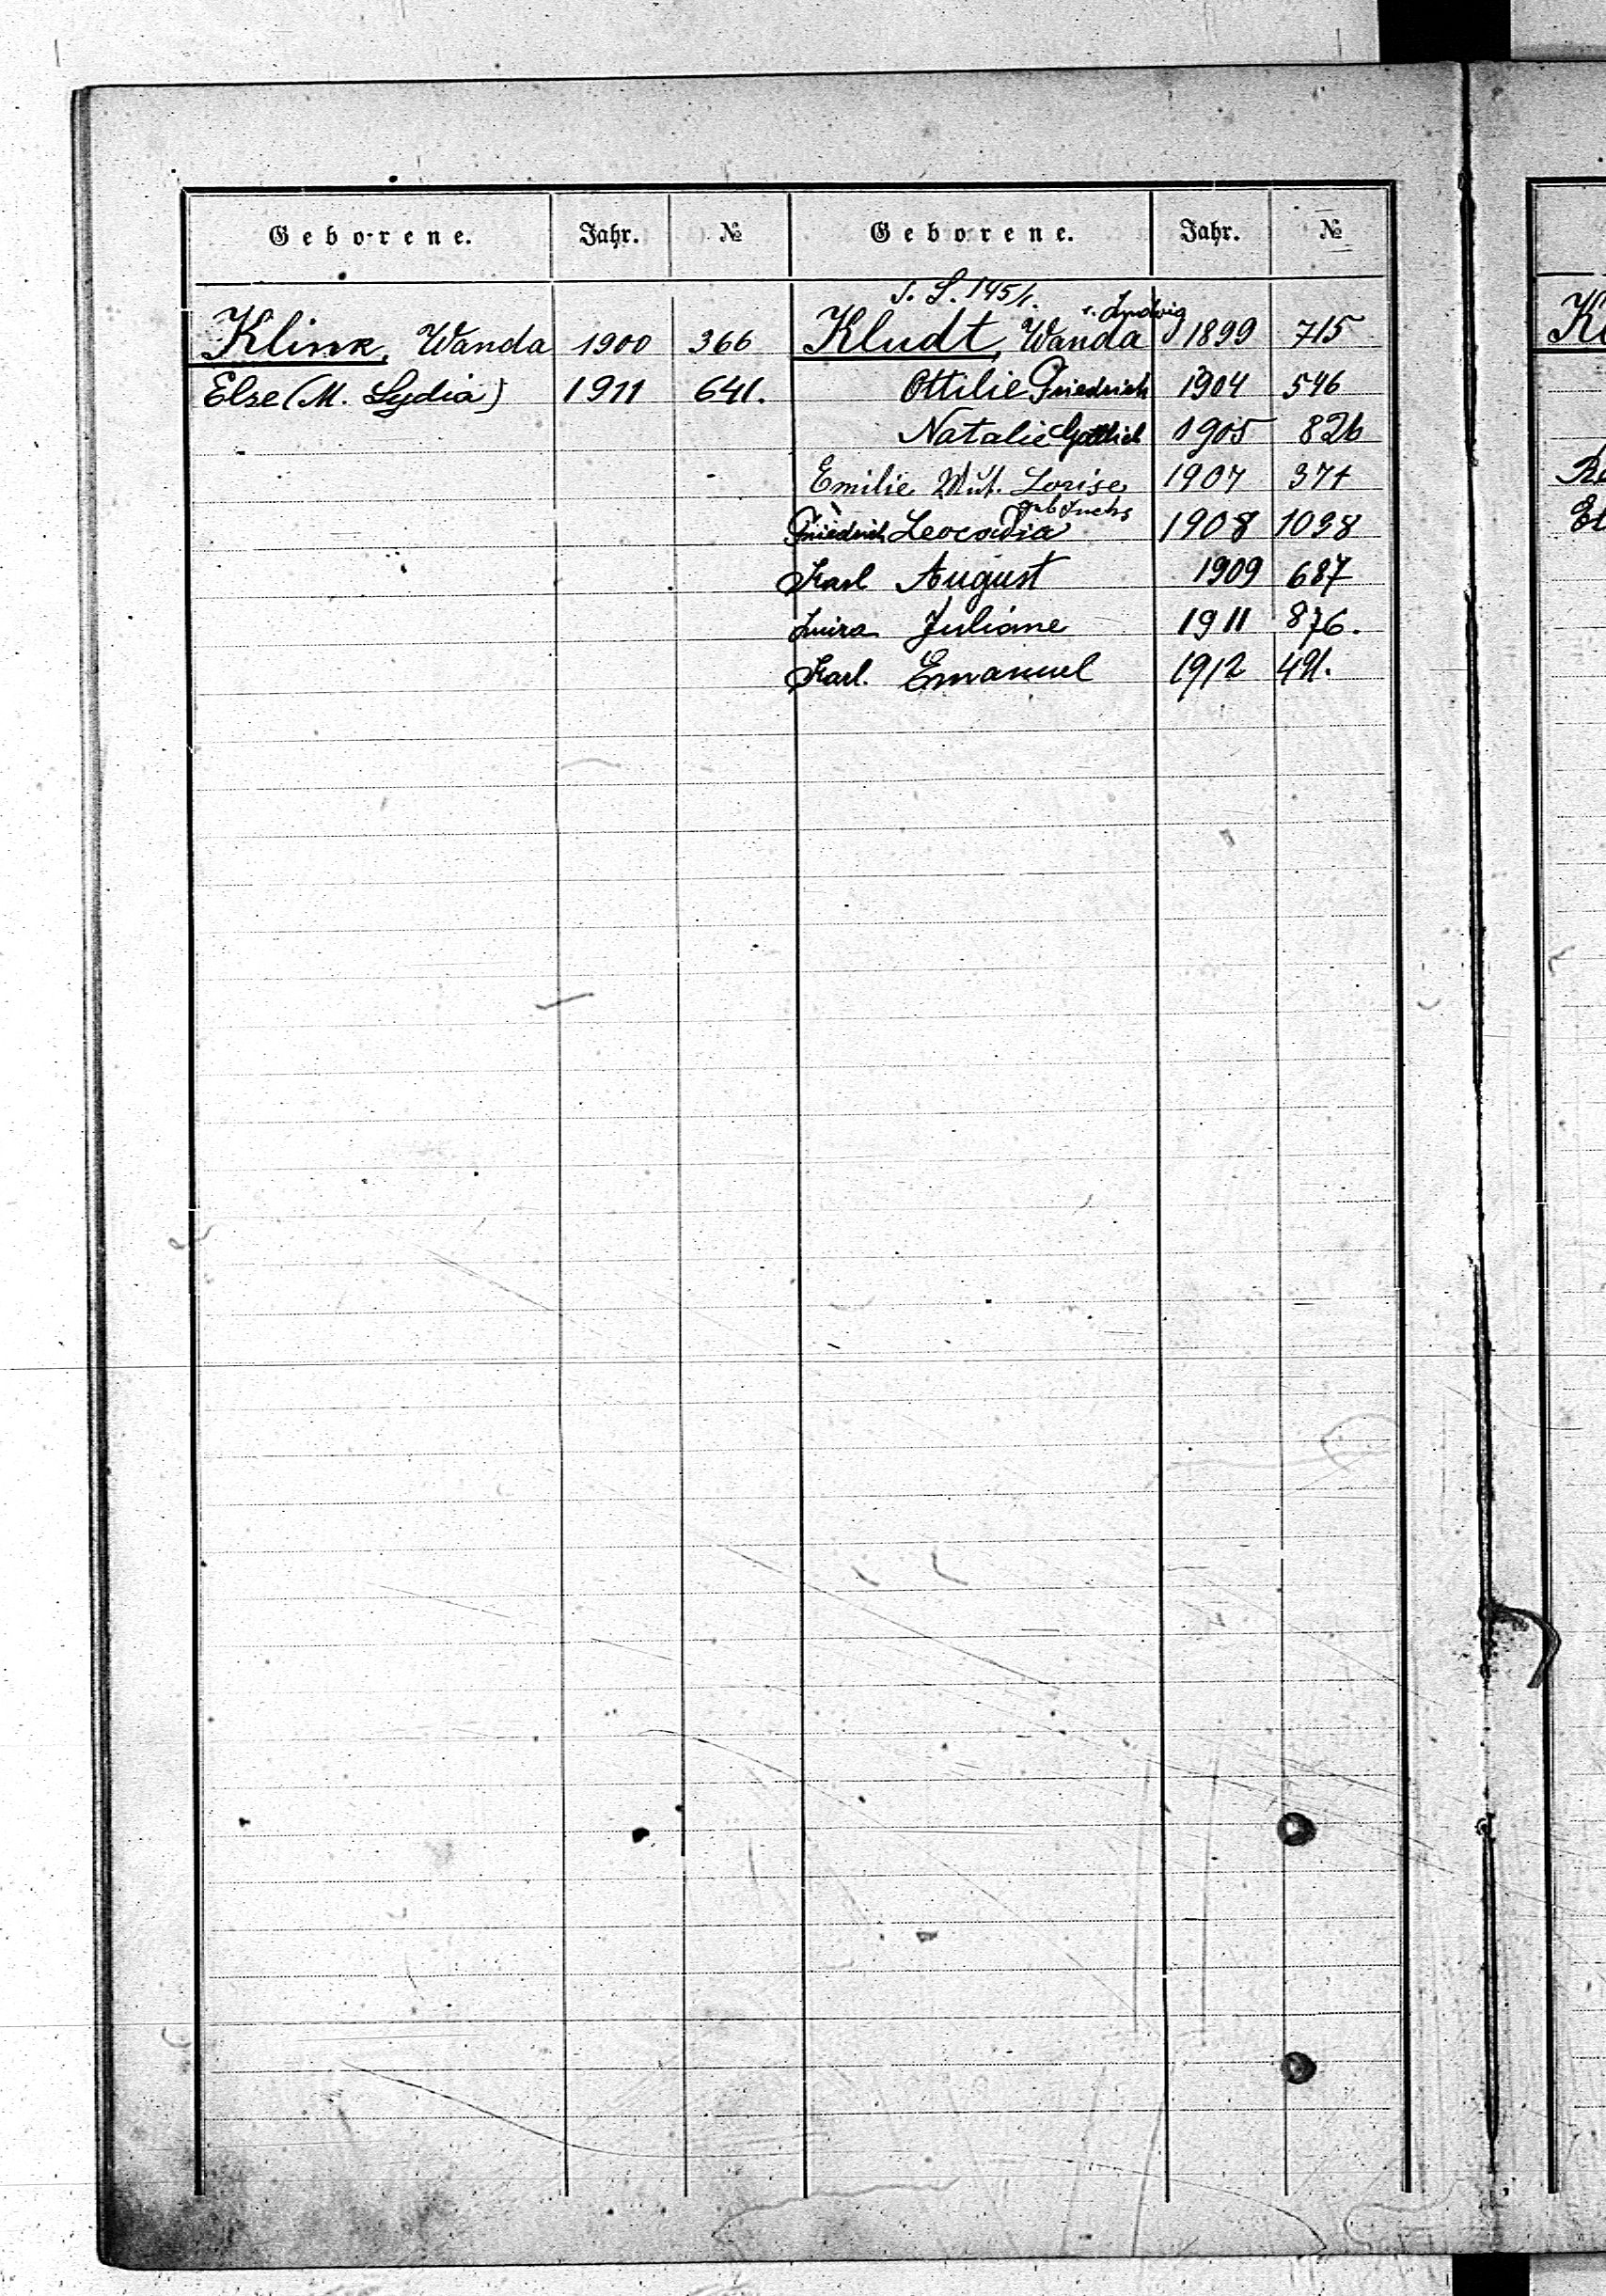 Geborene. Jahr. № Geborene. Jahr. №
s. S. 145/.
v. Ludwig
Klink, Wanda 1900 366 Kludt, Wanda 1899 715
Else (M. Lydia) 1911 641. Ottilie Friedrich 1904 546
Natalie Gottlieb 1905 826
Emilie Mut. Lorise 1907 371
geb Fuchs
Friedrich Leocadia 1908 1098
Karl August 1909 687
Juliane 1911 876.
Karl. Emanuel 1912 491.